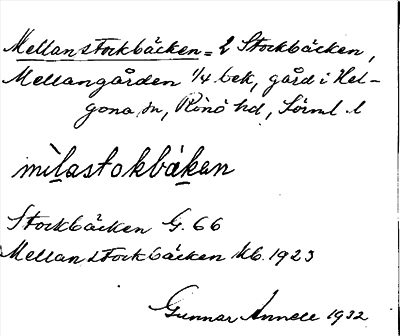 Mellanstockbäcken = 2 Stockbäcken,
Mellangården 1/4 bek, gård i Hel-
gona sn, Rönö hd, Sörml. l
mìlastokbäkan
Stockbäcken G. 66
Mellanstockbäcken Kb. 1923
Gunnar Annell 1932